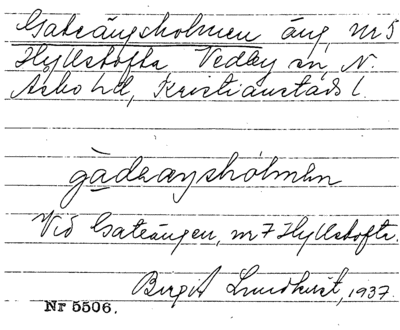 Gateängsholmen äng, nr 5
Hyllstofta Vedby sn, N.
Åsbo hd, Kristianstads l.
gàdræŋshólmən
Vid Gateängen, nr 7 Hyllstofta.
Birgit Lundkvist, 1937.
Nr 5506.